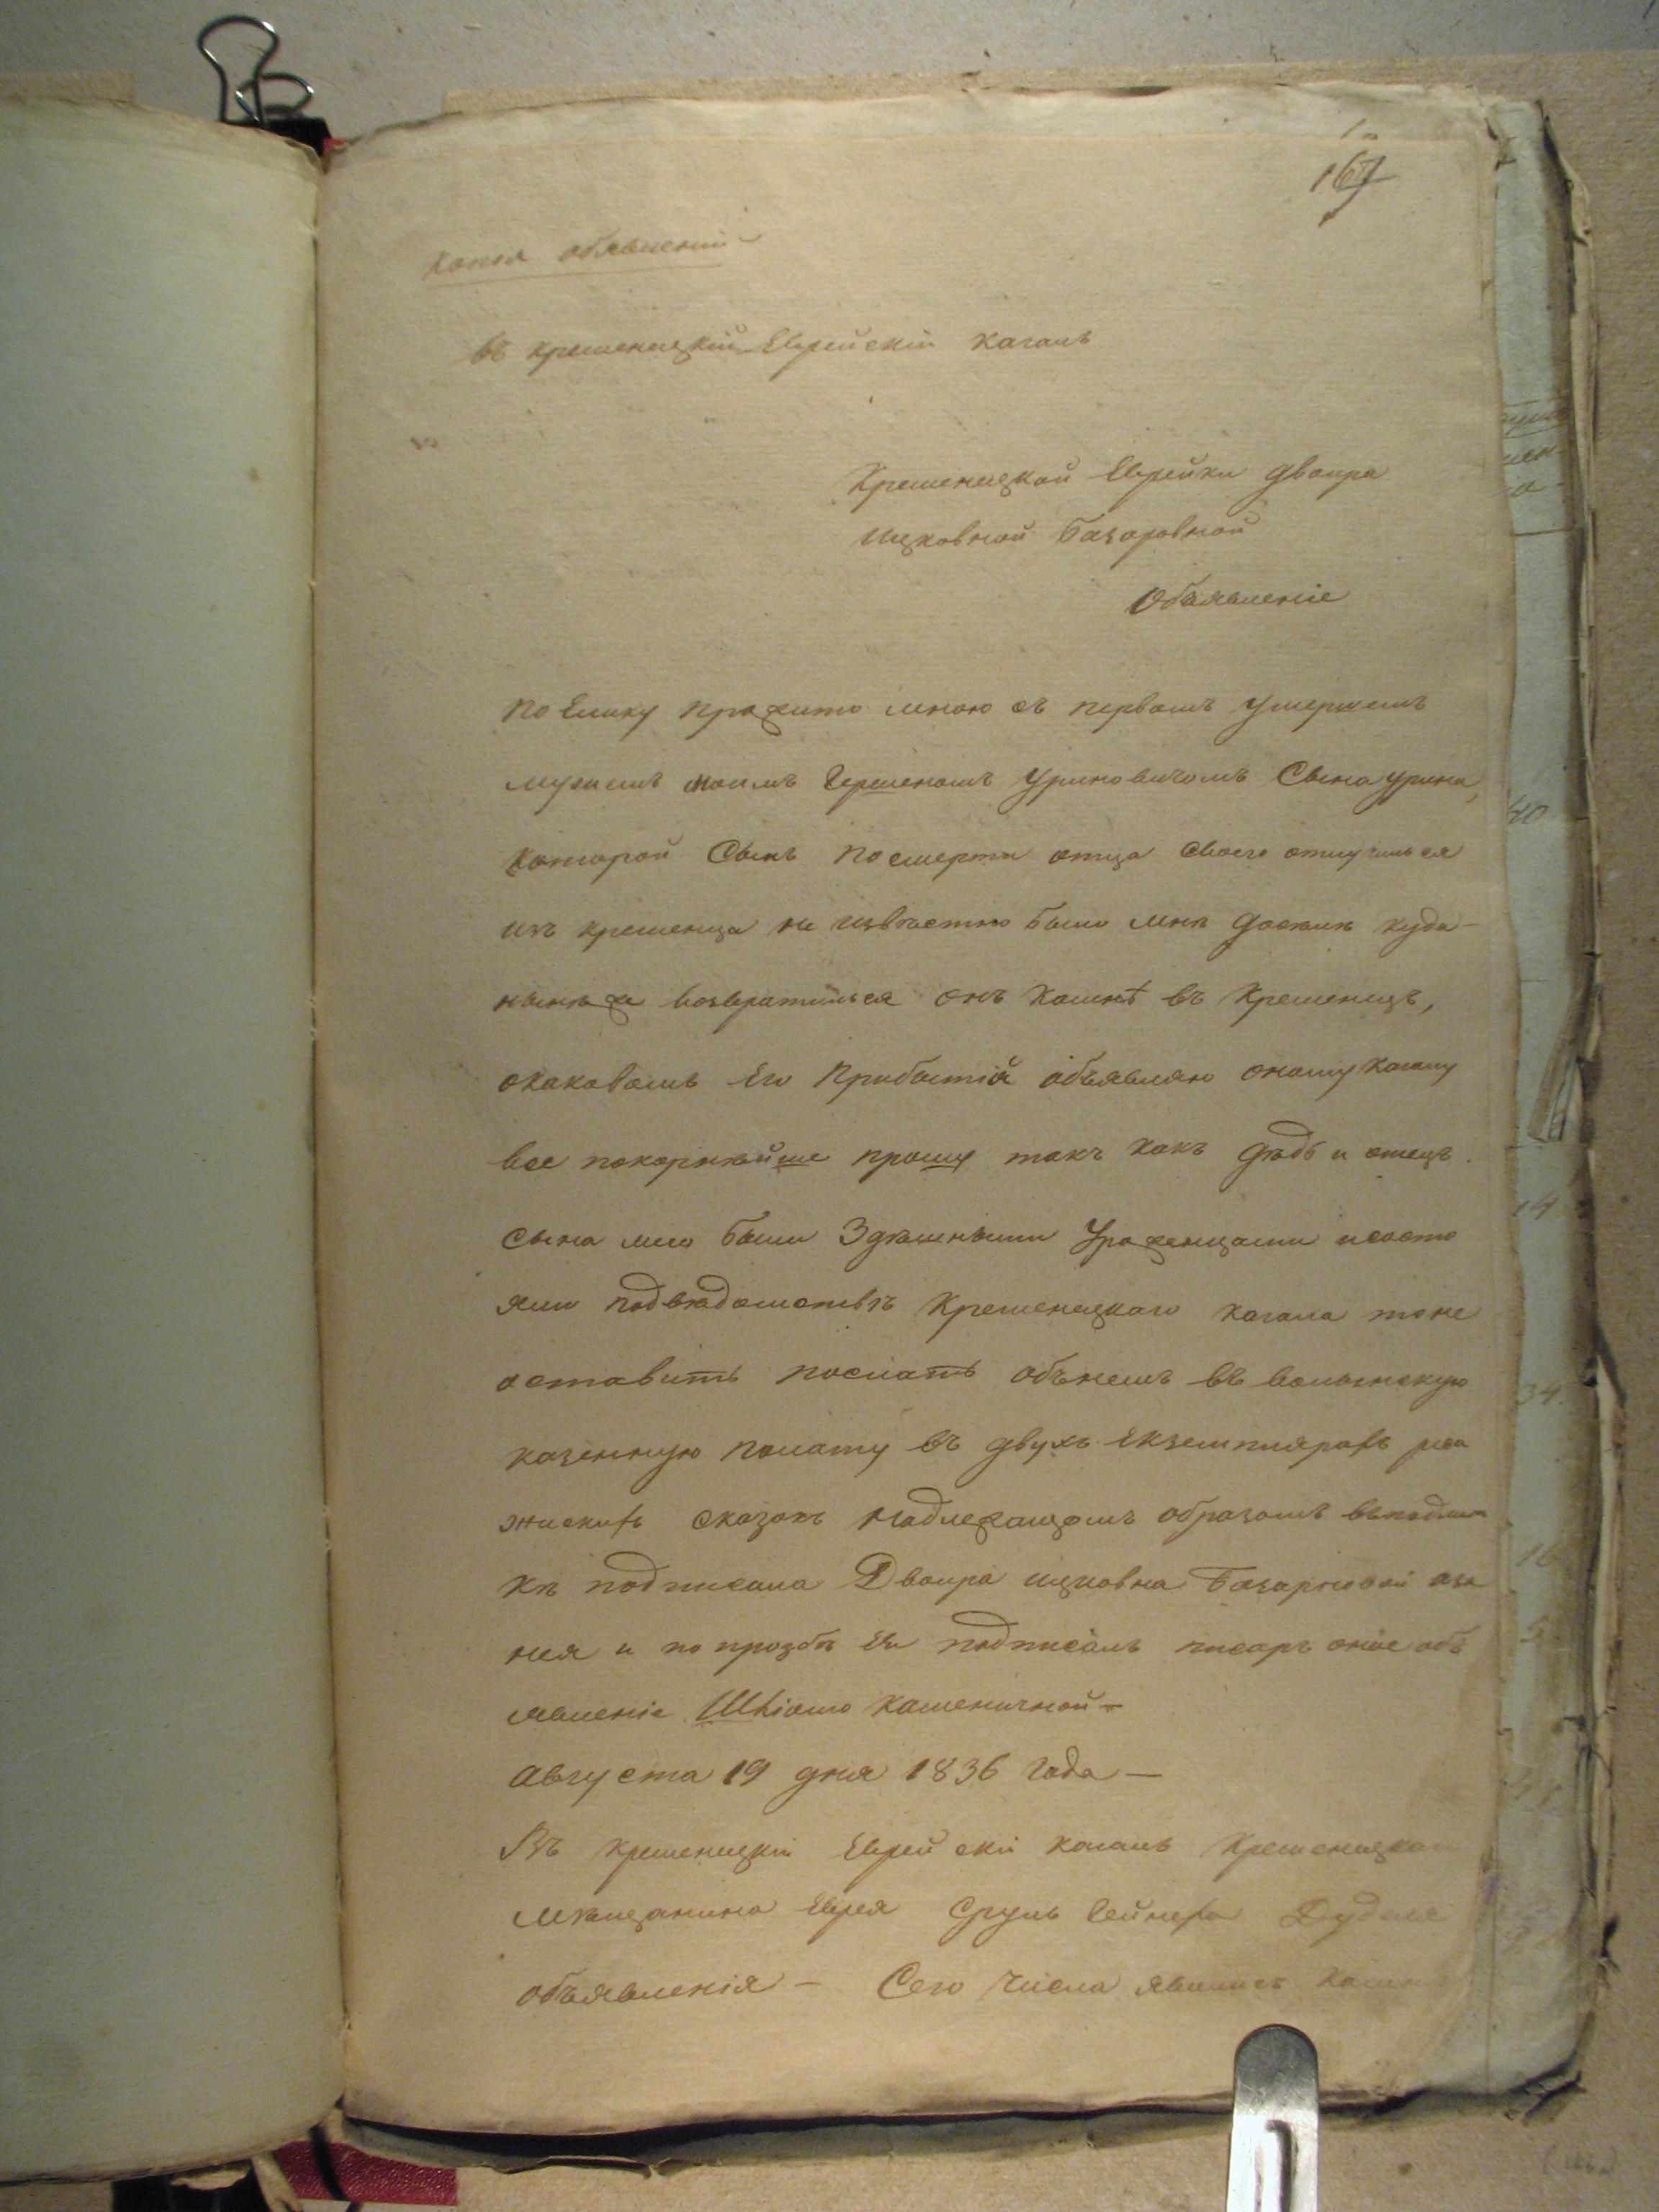 167
Копія обявленій
въ кременецкій Еврейскій кагалъ
Кременецкой Еврейки Двоира
Ицковной Базаровной
Объявленіе
По елику прожито мною съ первымъ умершемъ
мужемъ моимъ Гершеномъ Уриновичомъ Сына Урина,
которой Сынъ по смерти отца своего отлучился
изъ кременца не извѣстно было мнѣ доселѣ куда
нынѣ же возвратился онъ комнѣ въ Кременецъ,
окаковомъ Его Прибытій объявляю оному Кагалу
все покорнѣйше прошу такъ какъ дѣдъ и отецъ
сына мего были Здѣшными Уроженцами исосто
яли подвѣдомствѣ Кременецкаго кагала то не
оставить послать объ немъ въ волынскую
казенную полату въ двухъ Екземплярахъ реви
жискихъ сказокъ надлежащомъ образомъ въподлин
кѣ подписала Двоира Ицковна Базарновой аза
нея и по прозбѣ Ея подписалъ писаръ оніе объ
явленіе Шліомо Каменичной
Августа 19 дня 1836 года
Въ Кременецкій Еврейскій кагалъ Кременецкаго
мѣщанина Еврея Сруль Лейнера
объявленія Сего числа явилисъ